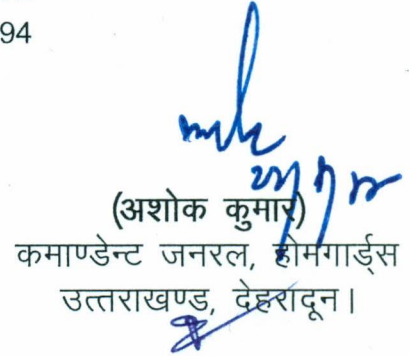 94
(अशोक कुमार)
कमाण्डेन्ट जनरल, होमगार्ड्स
उत्तराखण्ड, देहरादून।